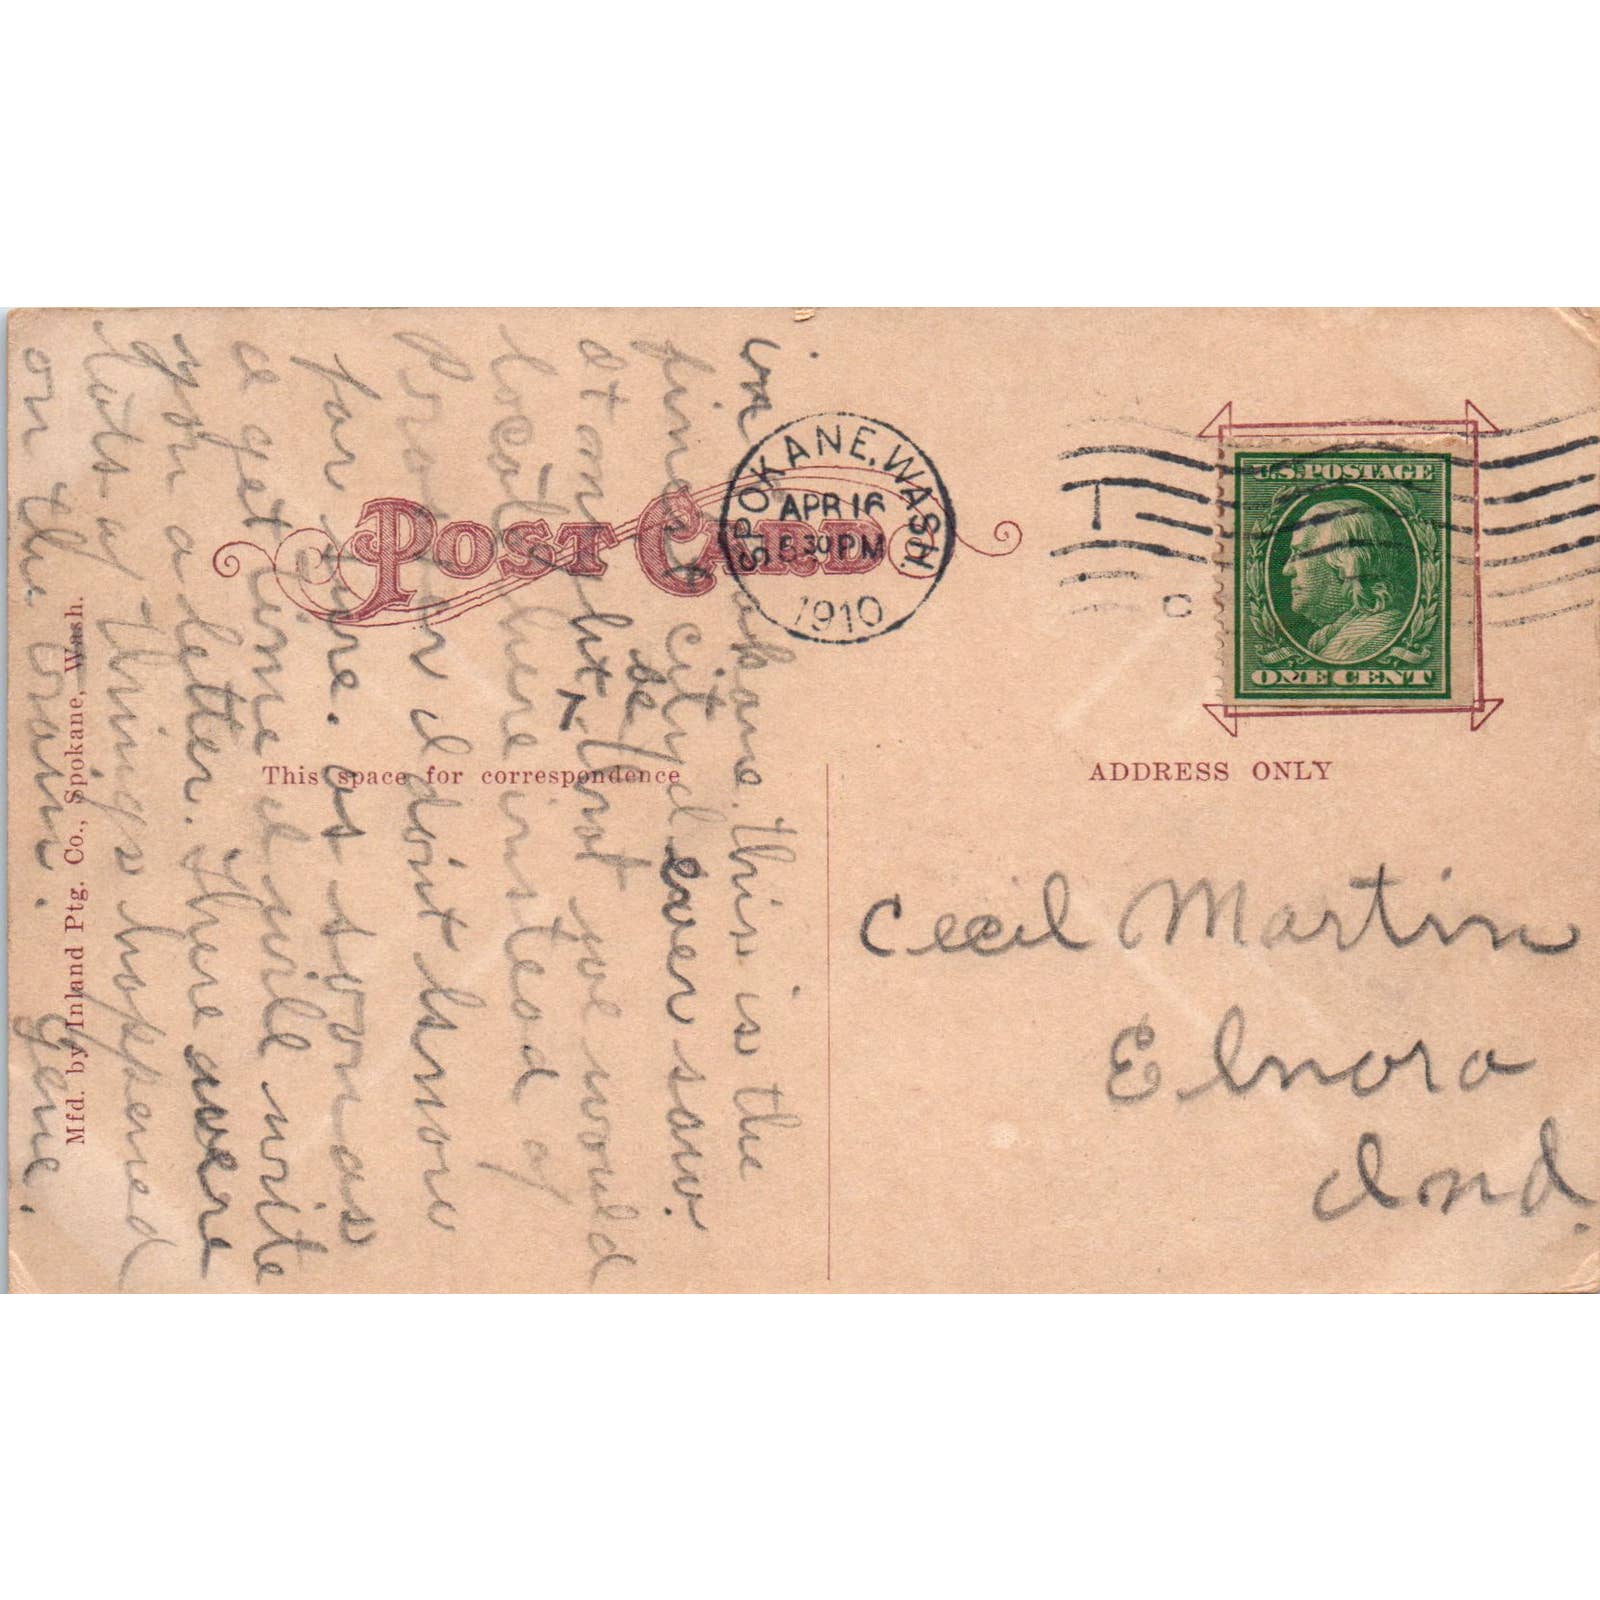 POST CARD
SPOKANE, WASH.
APR 16
5 30 PM
1910
U.S. POSTAGE
ONE CENT
This space for correspondence
ADDRESS ONLY
Mfd. by Inland Ptg. Co., Spokane, Wash.
Cecil Martin
Elnora
Ind.
in Spokane. this is the
finest city I ever saw.
at onht. but we would
be
locate here instead of
I dont know
for sure. as soon as
a get time I will write
you a letter. There were
lots of things happened
on the train. Gene.